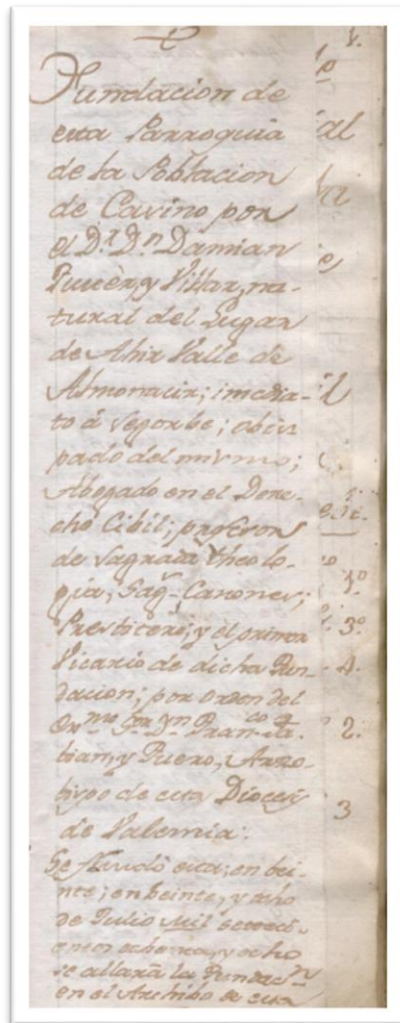 Fundacion de
esta Parroquia
de la Poblacion
de Cavino por
el D.r D.n Damian
y Villar, na-
tural del Lugar
de Ahin Valle de
Almonacir; imedia-
to á Segorbe; obis
pado del mismo;
Abogado en el Dere-
cho Cibil; profesor
de Sagrada Theolo-
gia, Sag.s Canones;
Presvitero; y el primer
Vicario de dicha Fun-
dacion; por orden del
Fran.co
bian, y Fuero, Arzo-
bispo de esta Diocesi
de Valencia.
Se fundó esta; en bei-
nte; en beinte, y ocho
de Julio mil setteci-
entos ochenta, y ocho
se allará la Fundac.n
en el Archibo de esta
al
1º
3º
4.
2.
3